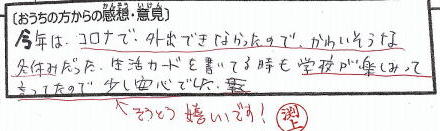 [おうちの方からの感想・意見]
かんそう いけん
今年は、コロナで、外出できなかったので、かわいそうな
冬休みだった。生活カードを書いてる時も学校が楽しみって
言ってたので少し安心でした。
そうとう嬉しいです！ 渕上